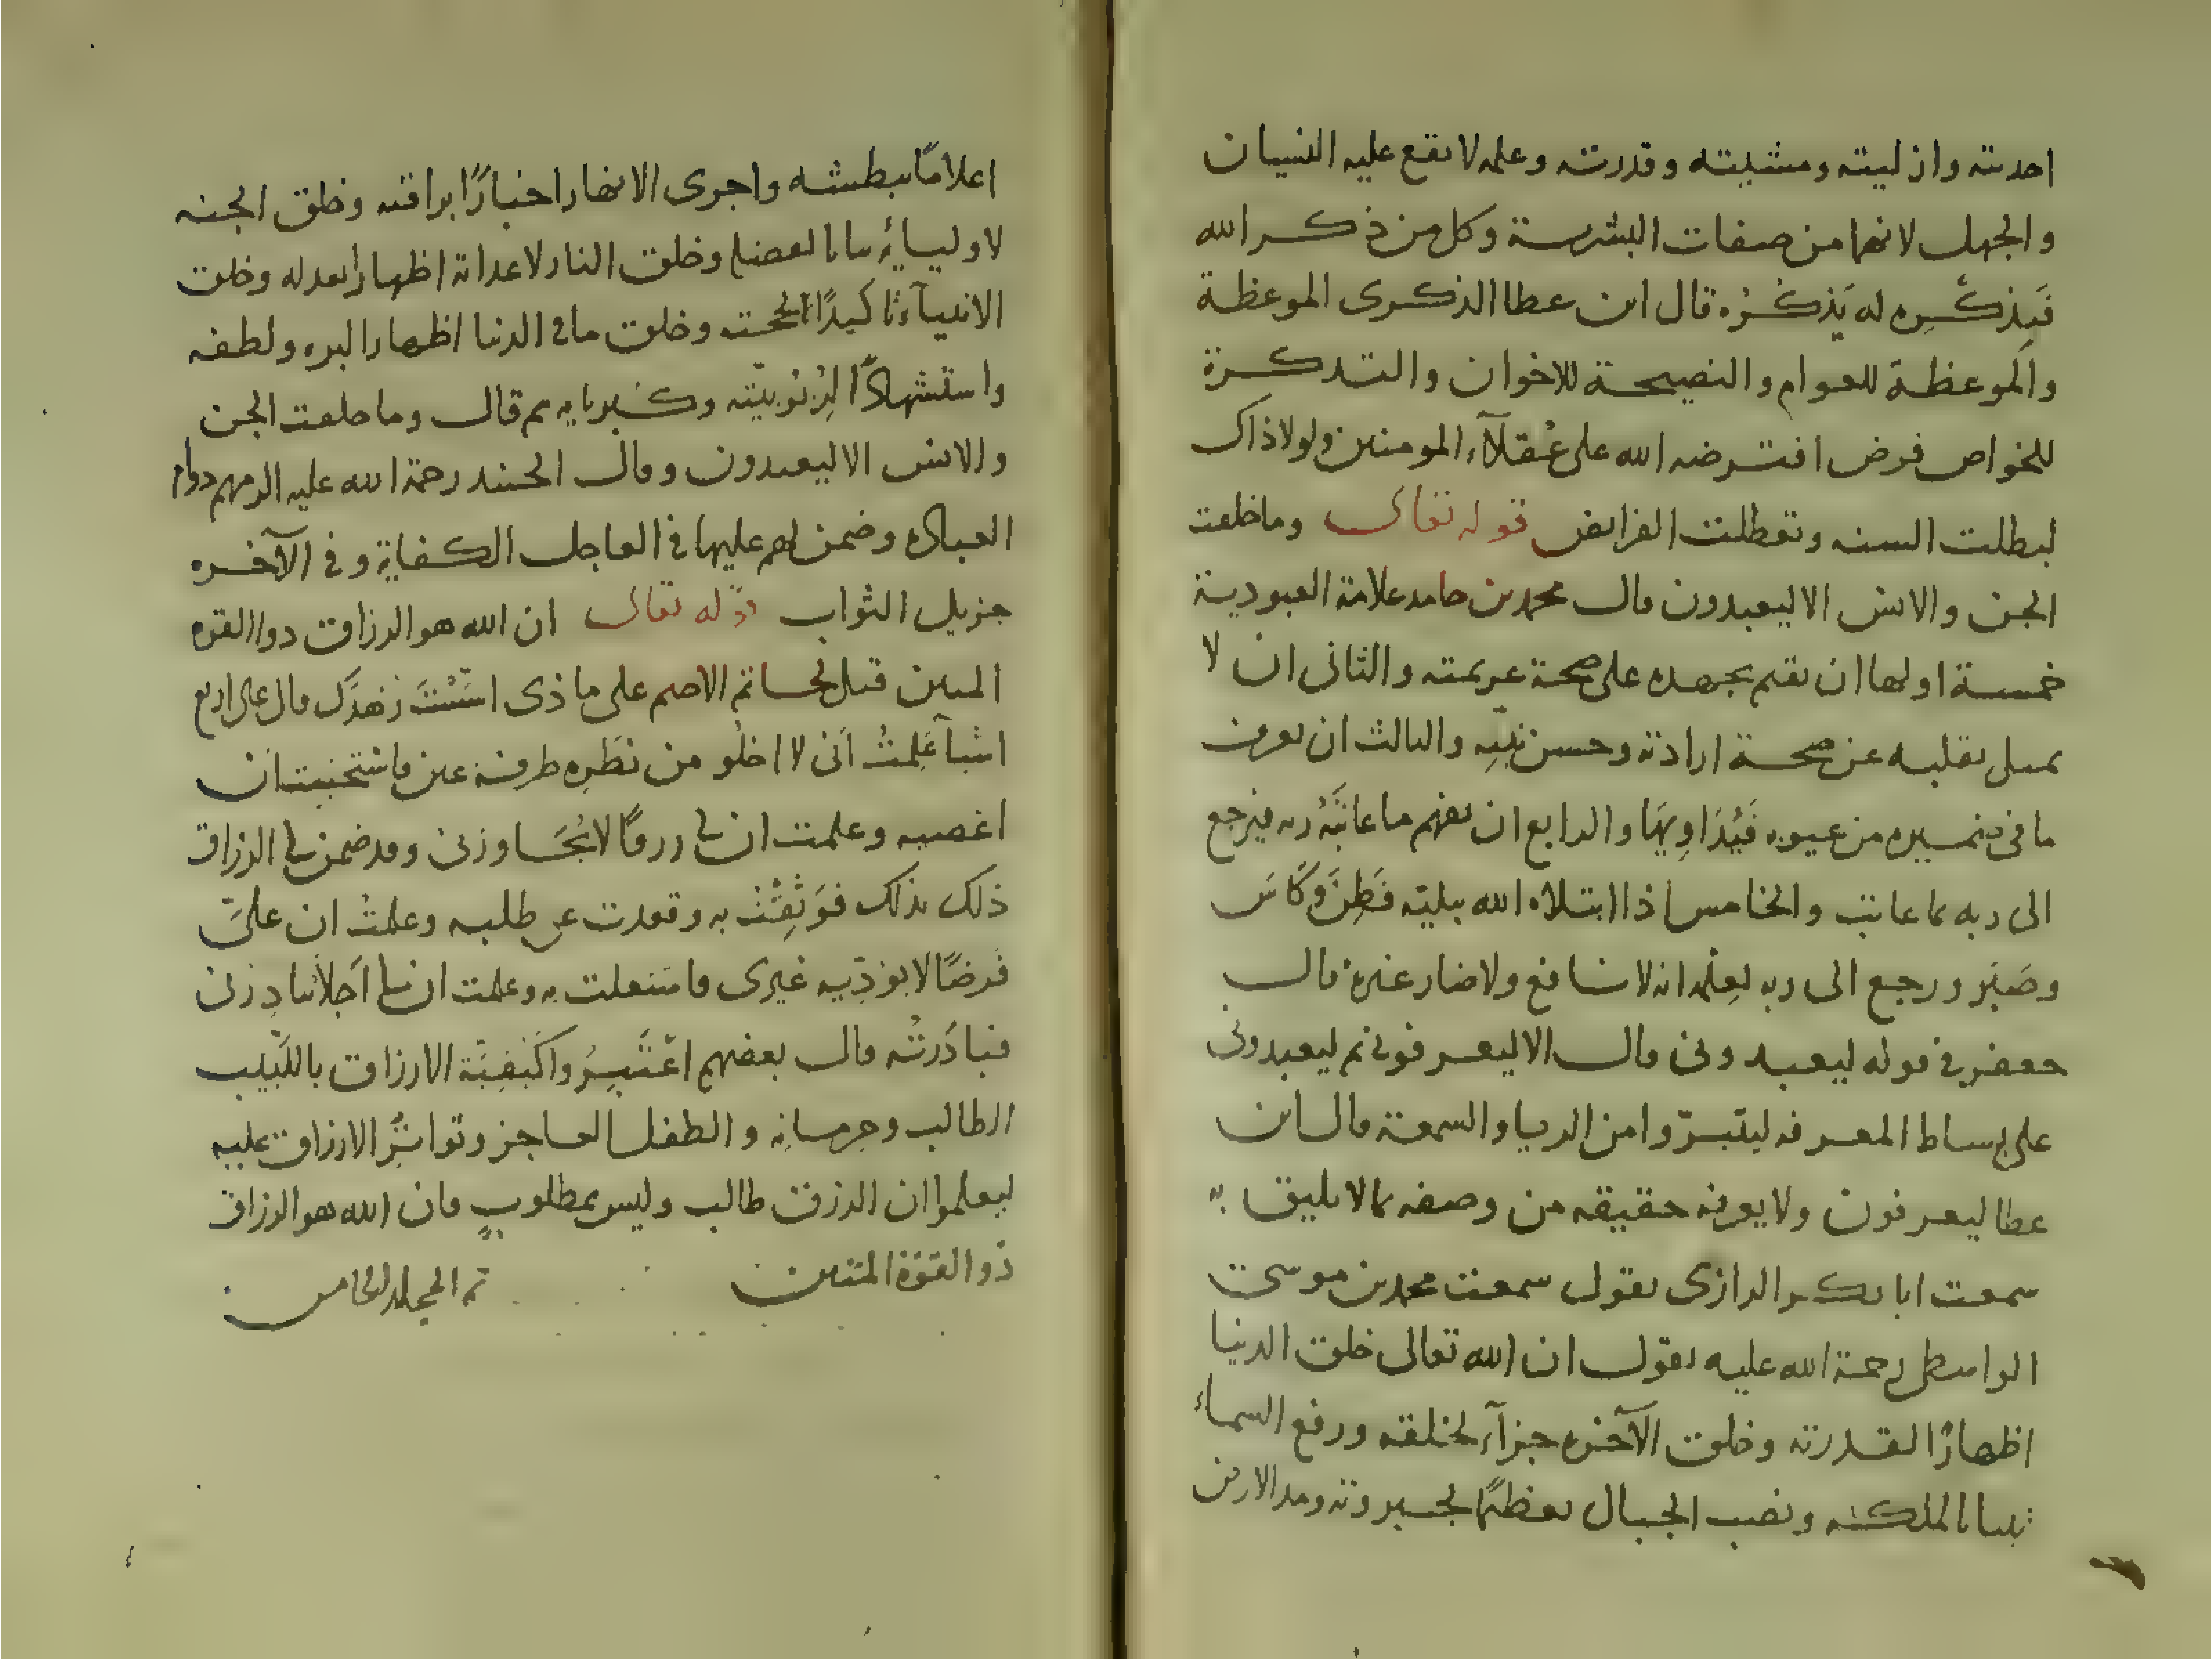 احديته وازليته ومشيته وقدرته وعلمه لا يقع عليه النسيان
والجهل لانهما من صفات البشرية وكل من ذكر الله
فبذكره له يذكره قال ابن عطا الذكرى الموعظة
والموعظة للعوام والنصيحة للاخوان والتذكرة
للخواص فرض افترضه الله على عقلاء المومنين ولولا ذاك
لبطلت السنه وتعطلت الفرايض قوله تعالى وما خلقت
الجن والانس الا ليعبدون قال محمد بن حامد علامة العبودية
خمسة اولها ان يقيم بجهده على صحة عزيمته والثانى ان لا
يميل بقلبه عن صحة ارادته وحسن نيته والثالث ان يعرف
ما فى ضميره من عيوبه فيداويها والرابع ان يفهم ما عاتبه ربه فيرجع
الى ربه بما عاتب والخامس اذا ابتلاه الله ببليته فطن وكاس
وصبر ورجع الى ربه لعلمه انه لا نافع ولا ضار غيره قال
جعفر فى قوله ليعبدونى قال الا ليعرفونى ثم ليعبدونى
على بساط المعرفه ليتبروا من الريا والسمعة قال ابن
عطا ليعرفون ولا يعرفه حقيقه من وصفه بما لا يليق به
سمعت ابا بكر الرازى يقول سمعت محمد بن موسى
الواسطى رحمة الله عليه يقول ان الله تعالى خلق الدنيا
اظهارا لقدرته وخلق الآخره جزآء لخلقه ورفع السماء
تبيانا لملكه ونصب الجبال تعظيما لجبروته ومد الارض
اعلاما ببطشه واجرى الانهار اخبارا برافته وخلق الجنه
لاوليائه بيانا لفضله وخلق النار لاعدائه اظهارا لعدله وخلق
الانبيآء تاكيدا لحجته وخلق ما فى الدنيا اظهارا لبره ولطفه
واستشهادا لربوبيته وكبريايه ثم قال وما خلقت الجن
والانس الا ليعبدون وقال الجنيد رحمة الله عليه الزمهم دوام
العباده وضمن لهم عليها فى العاجل الكفاية وفى الآخره
جزيل الثواب قوله تعالى ان الله هو الرزاق ذوا القوه
المتين قيل لحاتم الاصم على ما ذى اسست زهدك قال على اربع
اشيآ علمت انى لا اخلو من نظره طرفة عين فاستحييت ان
اعصيه وعلمت ان لى رزقا لا يجاوزنى وقد ضمن لى الرزاق
ذلك بذلك فوثقت به وقعدت عن طلبه وعلمت ان على
فرضا لا يوديه غيرى فاشتغلت به وعلمت ان لى اجلا يبادرنى
فبادرته قال بعضهم اعتبروا كيفية الارزاق باللبيب
الطالب وحرمانه والطفل العاجز وتواتر الارزاق عليه
ليعلموا ان الرزق طالب وليس بمطلوب فان الله هو الرزاق
ذو القوة المتين تم المجلد الخامس